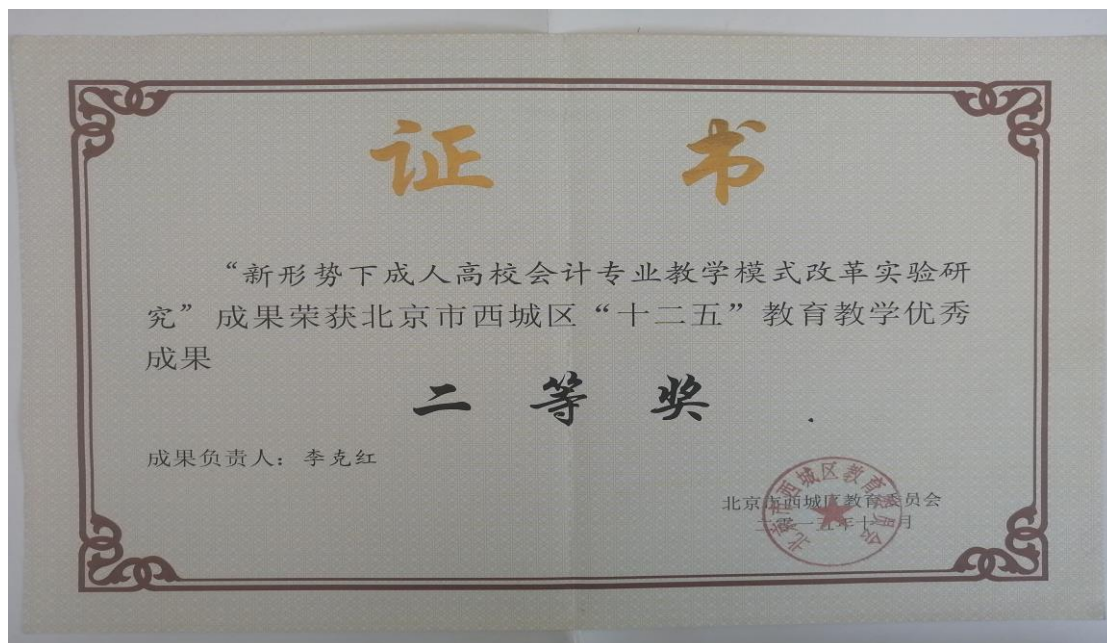 证 书
“新形势下成人高校会计专业教学模式改革实验研
究”成果荣获北京市西城区“十二五”教育教学优秀
成果
二 等 奖
成果负责人：李克红
北京市西城区教育委员会
二零一五年十一月
北京市西城区教育委员会